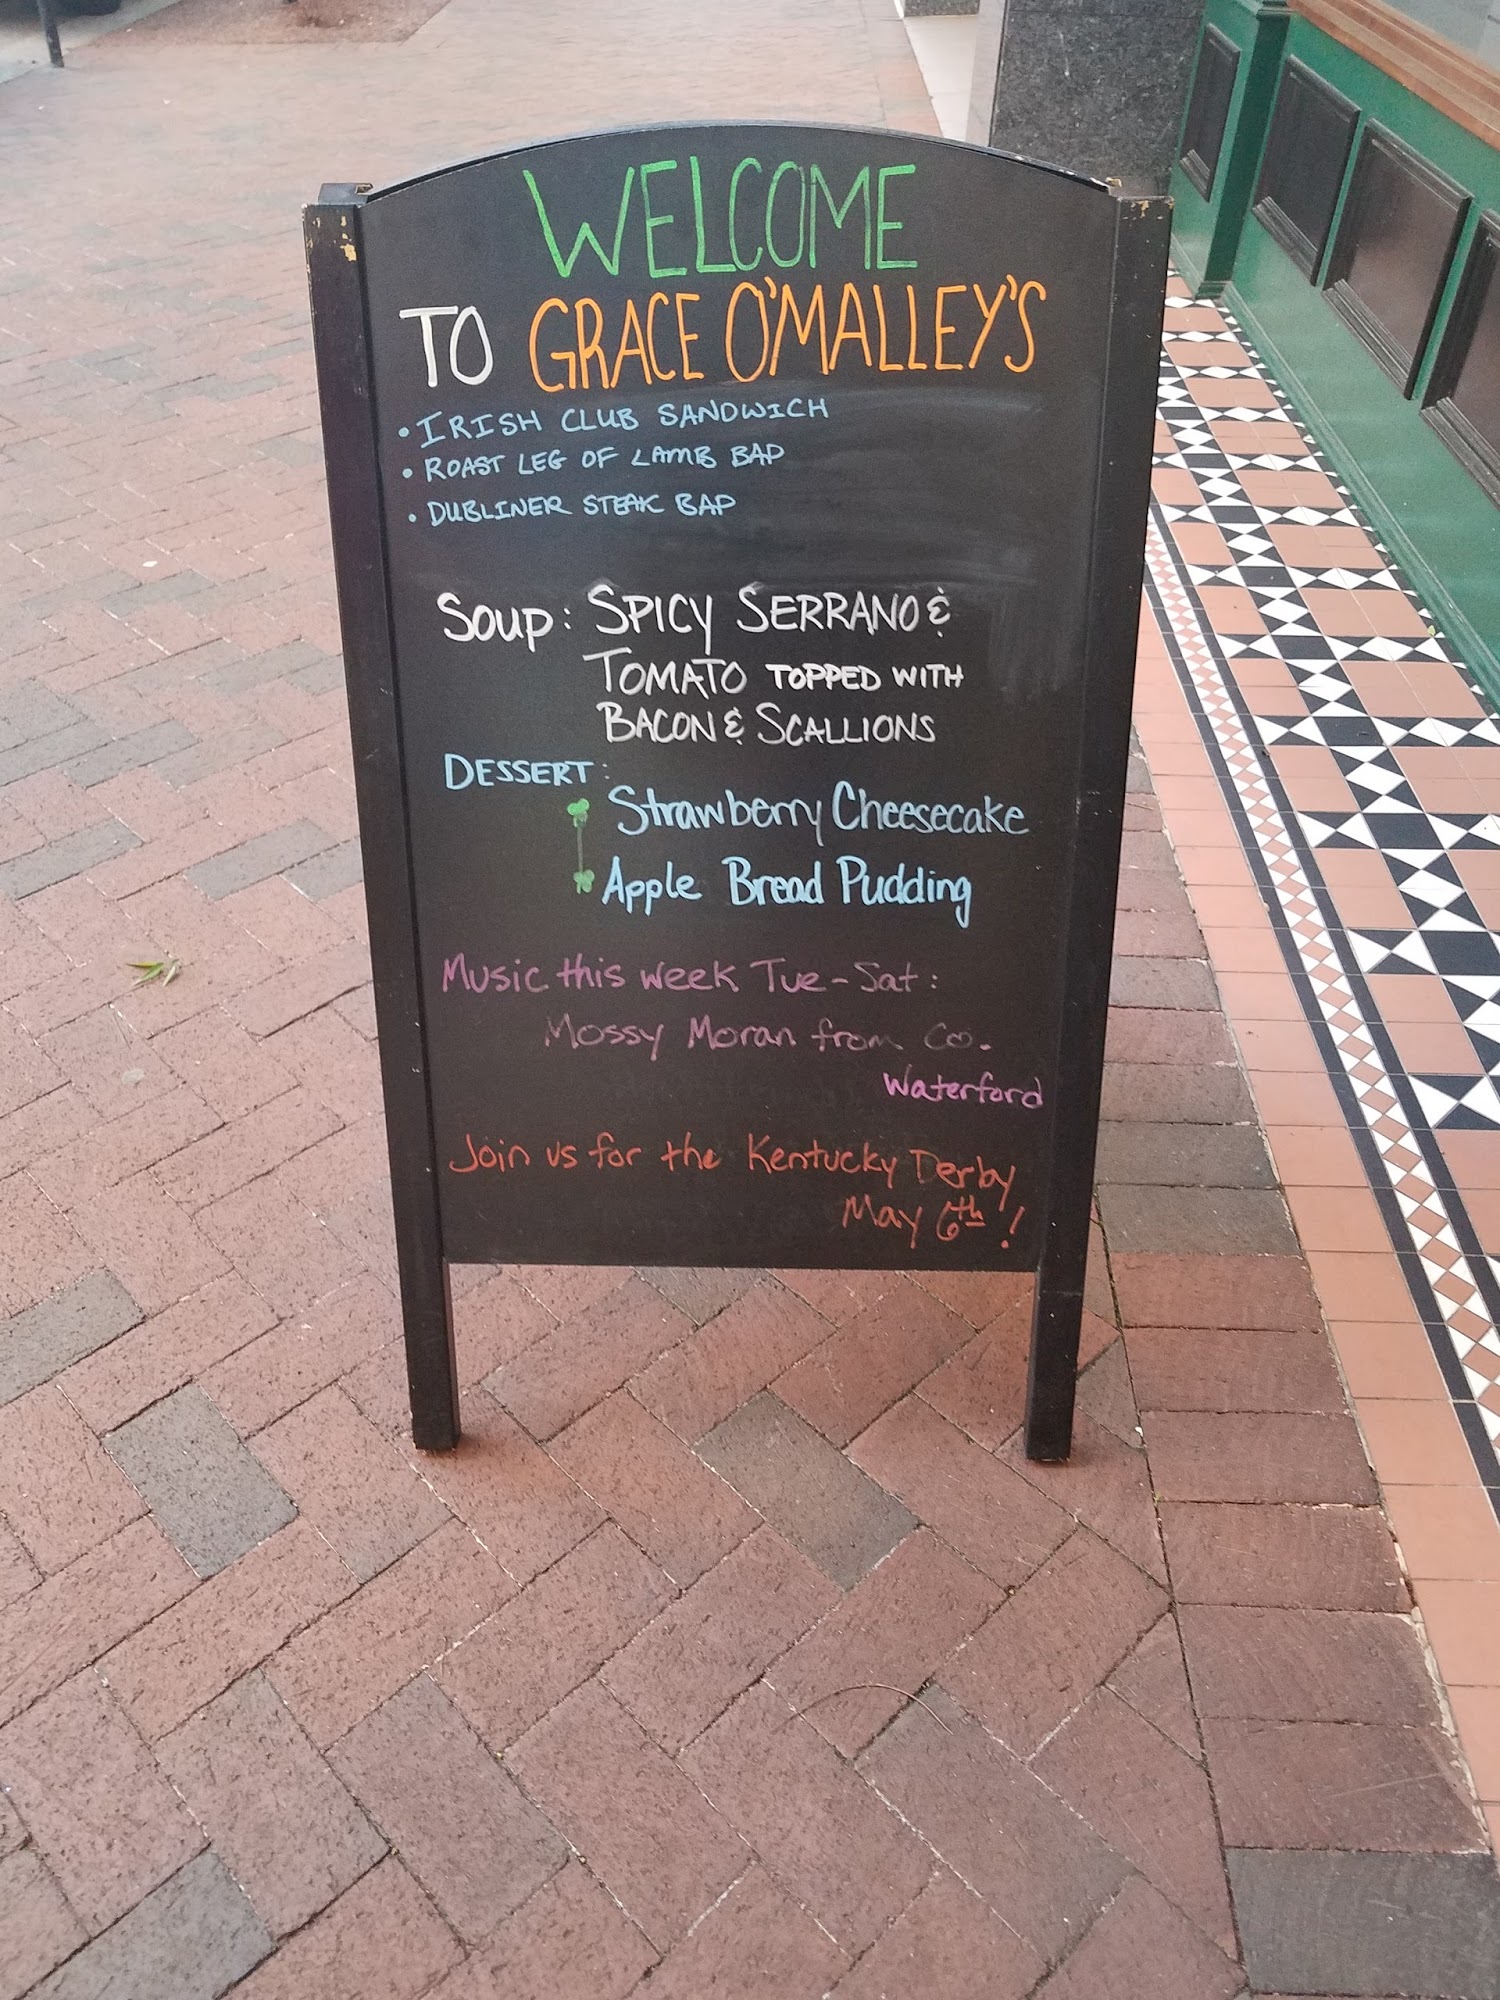 WELCOME
TO GRACE O'MALLEY'S
• IRISH CLUB SANDWICH
• ROAST LEG OF LAMB BAP
• DUBLINER STEAK BAP
SOUP: SPICY SERRANO &
TOMATO TOPPED WITH
BACON & SCALLIONS
DESSERT:
Strawberry Cheesecake
Apple Bread Pudding
Music this week Tue-Sat:
Mossy Moran from Co.
Waterford
Join us for the Kentucky Derby
May 6th!